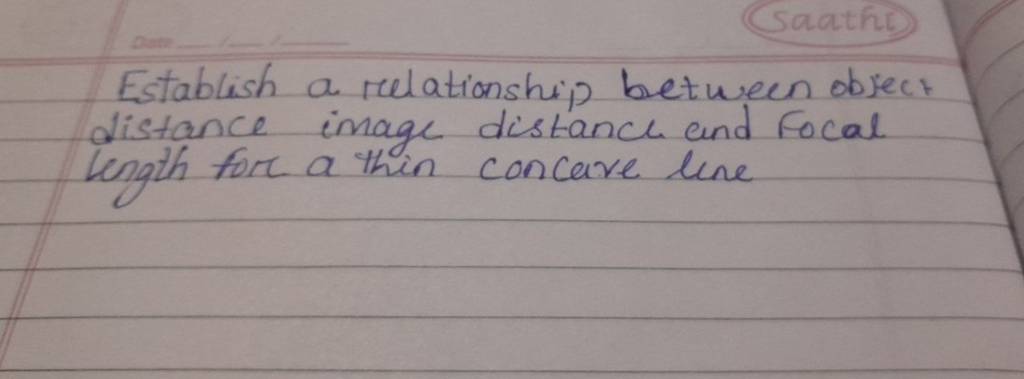 saathi
Date
Establish a relationship between object
distance image distance and Focal
length for a thin concave line